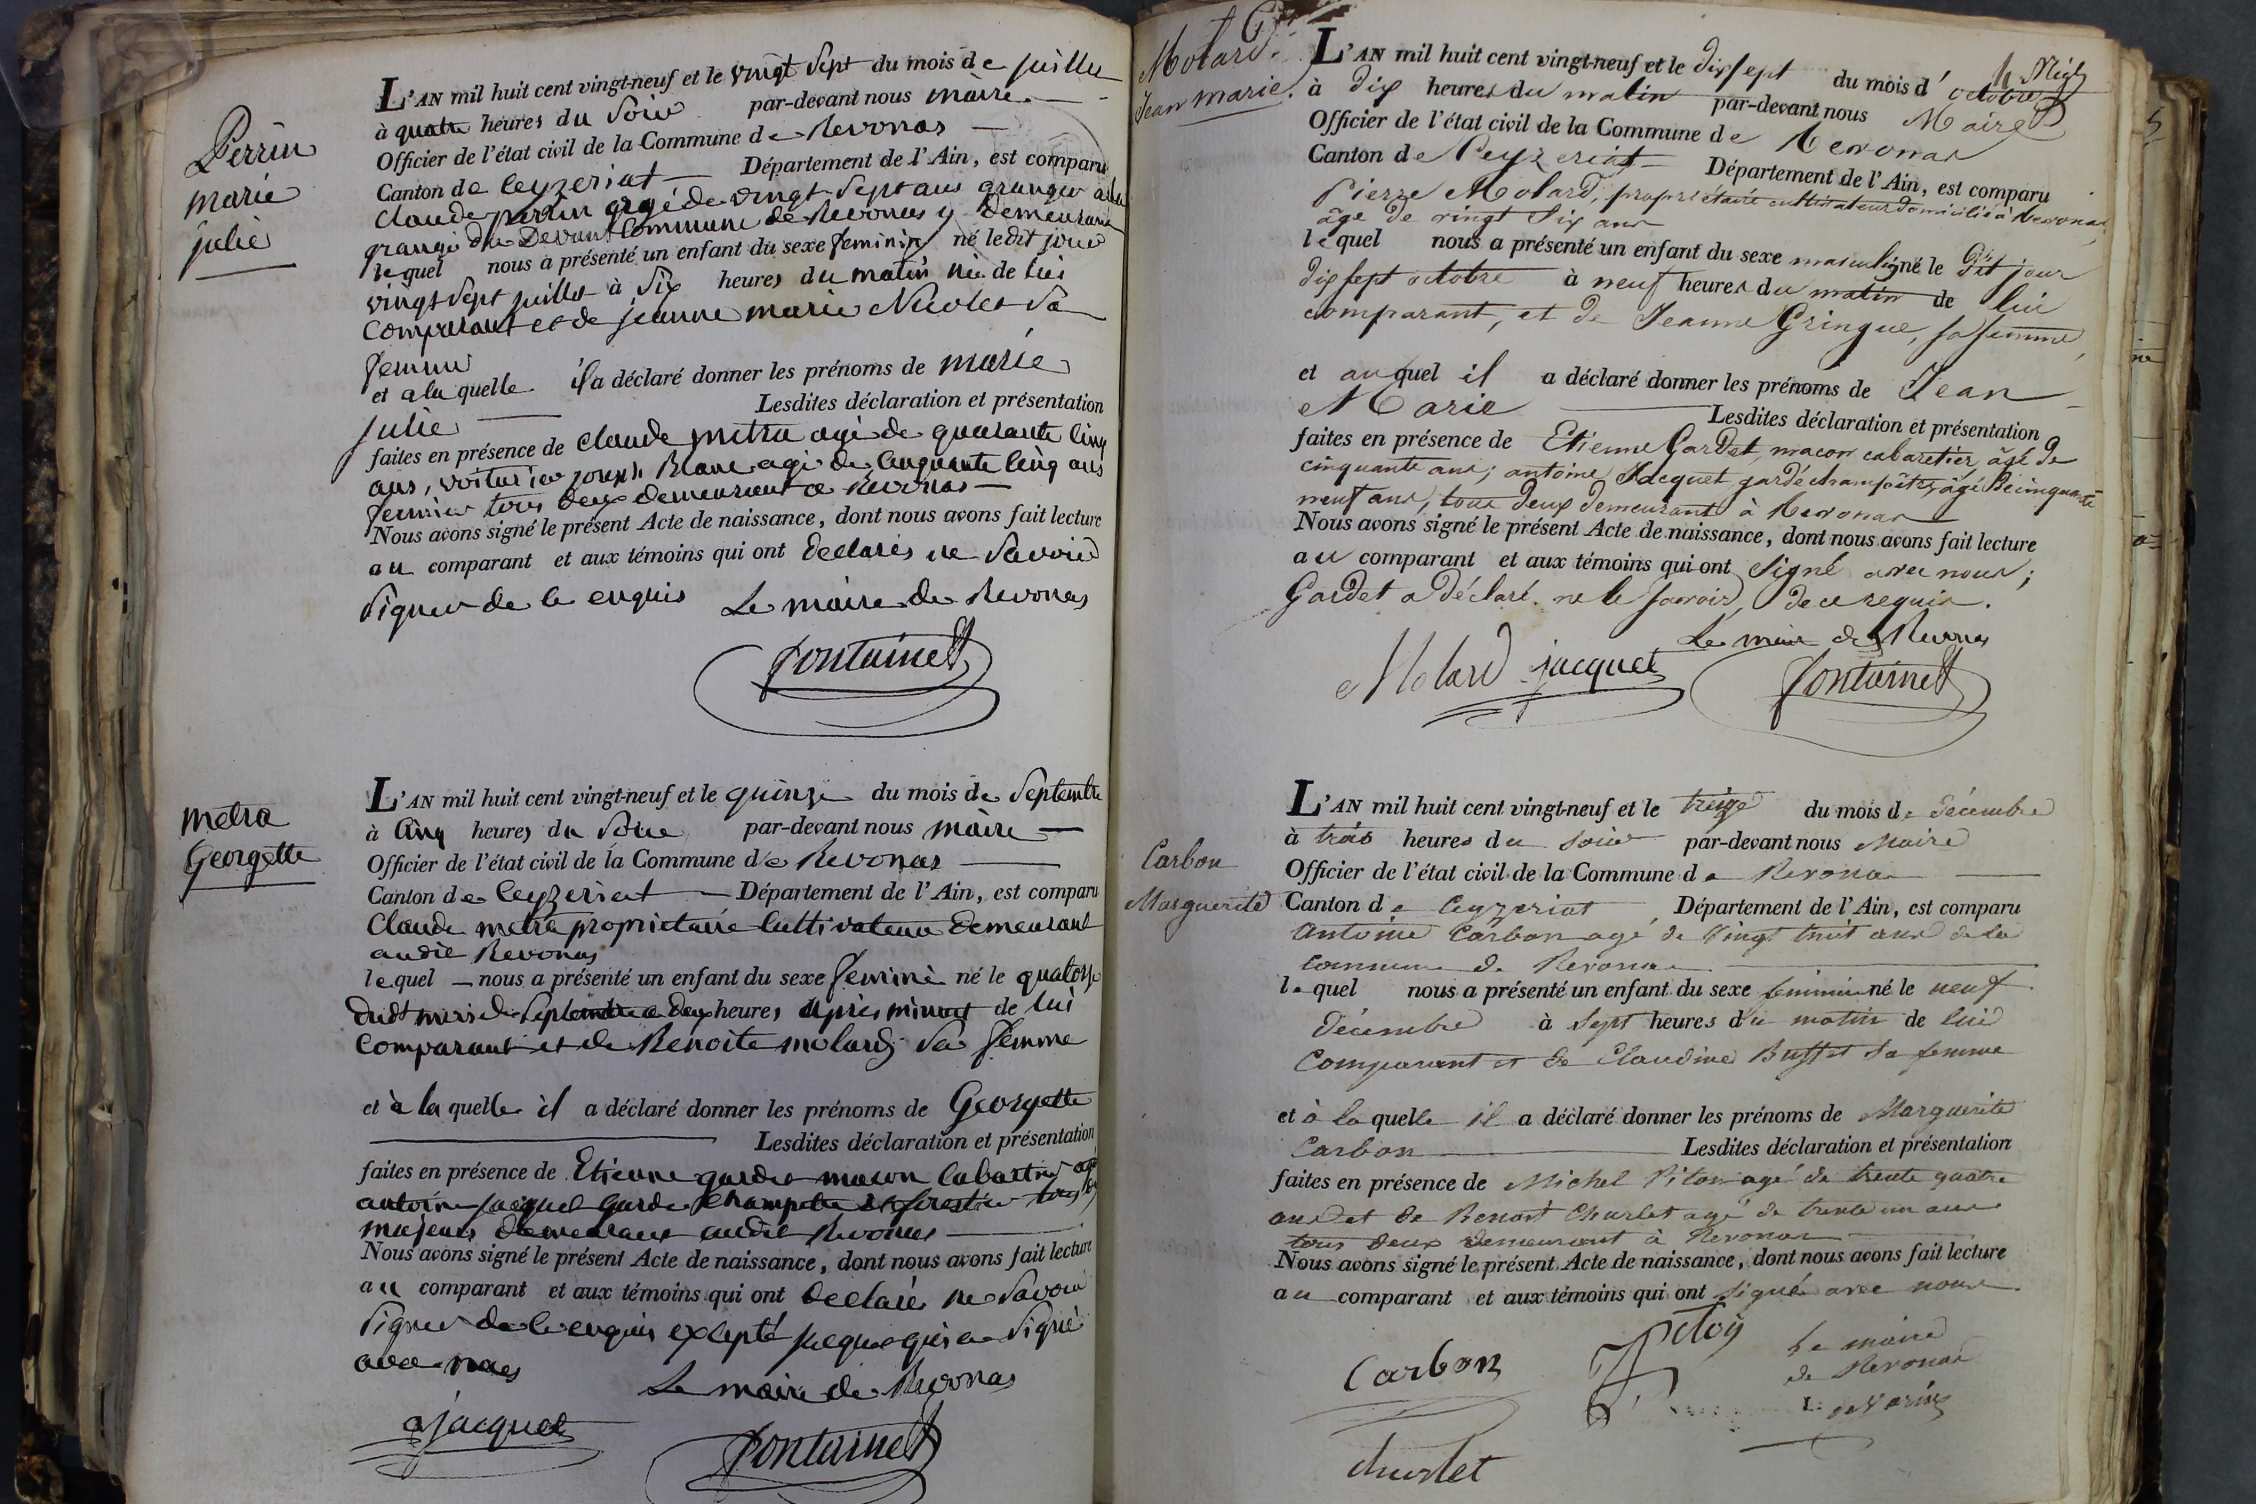 L'AN mil huit cent vingt-neuf et le vingt Sept du mois de juillet
à quatre heures du Soir par-devant nous maire
Officier de l'état civil de la Commune de Revonas
Canton de Ceyzeriat Département de l'Ain, est comparu
Claude perrin agé de vingt Sept ans granger à la
grange du Devant Commune de Revonas y demeurant
lequel nous a présenté un enfant du sexe feminin né ledit jour
vingt Sept juillet à Six heures du matin née de lui
Comparant et de jeanne marie Nicolet Sa
femme
et a la quelle il a déclaré donner les prénoms de marie
julie Lesdites déclaration et présentation
faites en présence de Claude metra agé de quarante Cinq
ans, voiturier joseph Blanc agé de Cinquante Cinq ans
fermier tous deux demeurant a Revonas
Nous avons signé le présent Acte de naissance, dont nous avons fait lecture
au comparant et aux témoins qui ont declarés ne Savoir
Signer de le enquis Le maire de Revonas
fontainet
Perrin
marie
julie
L'AN mil huit cent vingt-neuf et le quinze du mois de Septembre
à Cinq heures du Soir par-devant nous maire
Officier de l'état civil de la Commune de Revonas
Canton de Ceyzeriat Département de l'Ain, est comparu
Claude metra proprietaire Cultivateur demeurant
audit Revonas
lequel nous a présenté un enfant du sexe feminin né le quatorze
dudt mois de Septembre a deux heures après minuit de lui
Comparant et de Benoite molard Sa femme
et à la quelle il a déclaré donner les prénoms de Georgette
Lesdites déclaration et présentation
faites en présence de Etienne gardet macon Cabartier
antoine jacquet Garde Champetre et forestier tous
majeurs demeurant audit Revonas
Nous avons signé le présent Acte de naissance, dont nous avons fait lecture
au comparant et aux témoins qui ont declaré ne Savoir
Signer de le enquis excepté jacquet qui a Signé
avec nous
Le maire de Revonas
ajacquet fontainet
metra
Georgette
L'AN mil huit cent vingt-neuf et le dix sept du mois d'octobre
à dix heures du matin par-devant nous Maire
Officier de l'état civil de la Commune de Revonas
Canton de Ceyzeriat Département de l'Ain, est comparu
Pierre Molard, propriétaire cultivateur domicilié à Revonas,
âgé de vingt six ans
lequel nous a présenté un enfant du sexe masculin né le dit jour
dix sept octobre à neuf heures du matin de lui
comparant, et de Jeanne Gringue, sa femme,
et auquel il a déclaré donner les prénoms de Jean
Marie Lesdites déclaration et présentation
faites en présence de Etienne Gardet, macon cabaretier, âgé de
cinquante ans; antoine Jacquet garde champêtre, âgé de cinquante
neuf ans, tous deux demeurant à Revonas
Nous avons signé le présent Acte de naissance, dont nous avons fait lecture
au comparant et aux témoins qui ont signé avec nous;
Gardet a déclaré ne le savoir, de ce requis.
Le maire de Revonas
Molard jacquet fontainet
Molard
Jean marie.
L'AN mil huit cent vingt-neuf et le treize du mois de décembre
à trois heures du soir par-devant nous Maire
Officier de l'état civil de la Commune de Revonas
Canton de Ceyzeriat Département de l'Ain, est comparu
Antoine Carbon agé de vingt huit ans de la
commune de Revonas
lequel nous a présenté un enfant du sexe feminin né le neuf
décembre à sept heures du matin de lui
Comparant et de Claudine Buffet sa femme
et à la quelle il a déclaré donner les prénoms de Marguerite
Carbon Lesdites déclaration et présentation
faites en présence de Michel Piton agé de trente quatre
ans et de Benoit Churlet agé de trente un ans
tous deux demeurant à Revonas
Nous avons signé le présent Acte de naissance, dont nous avons fait lecture
au comparant et aux témoins qui ont signé avec nous
Carbon
Le maire
de Revonas
churlet
Carbon
Marguerite